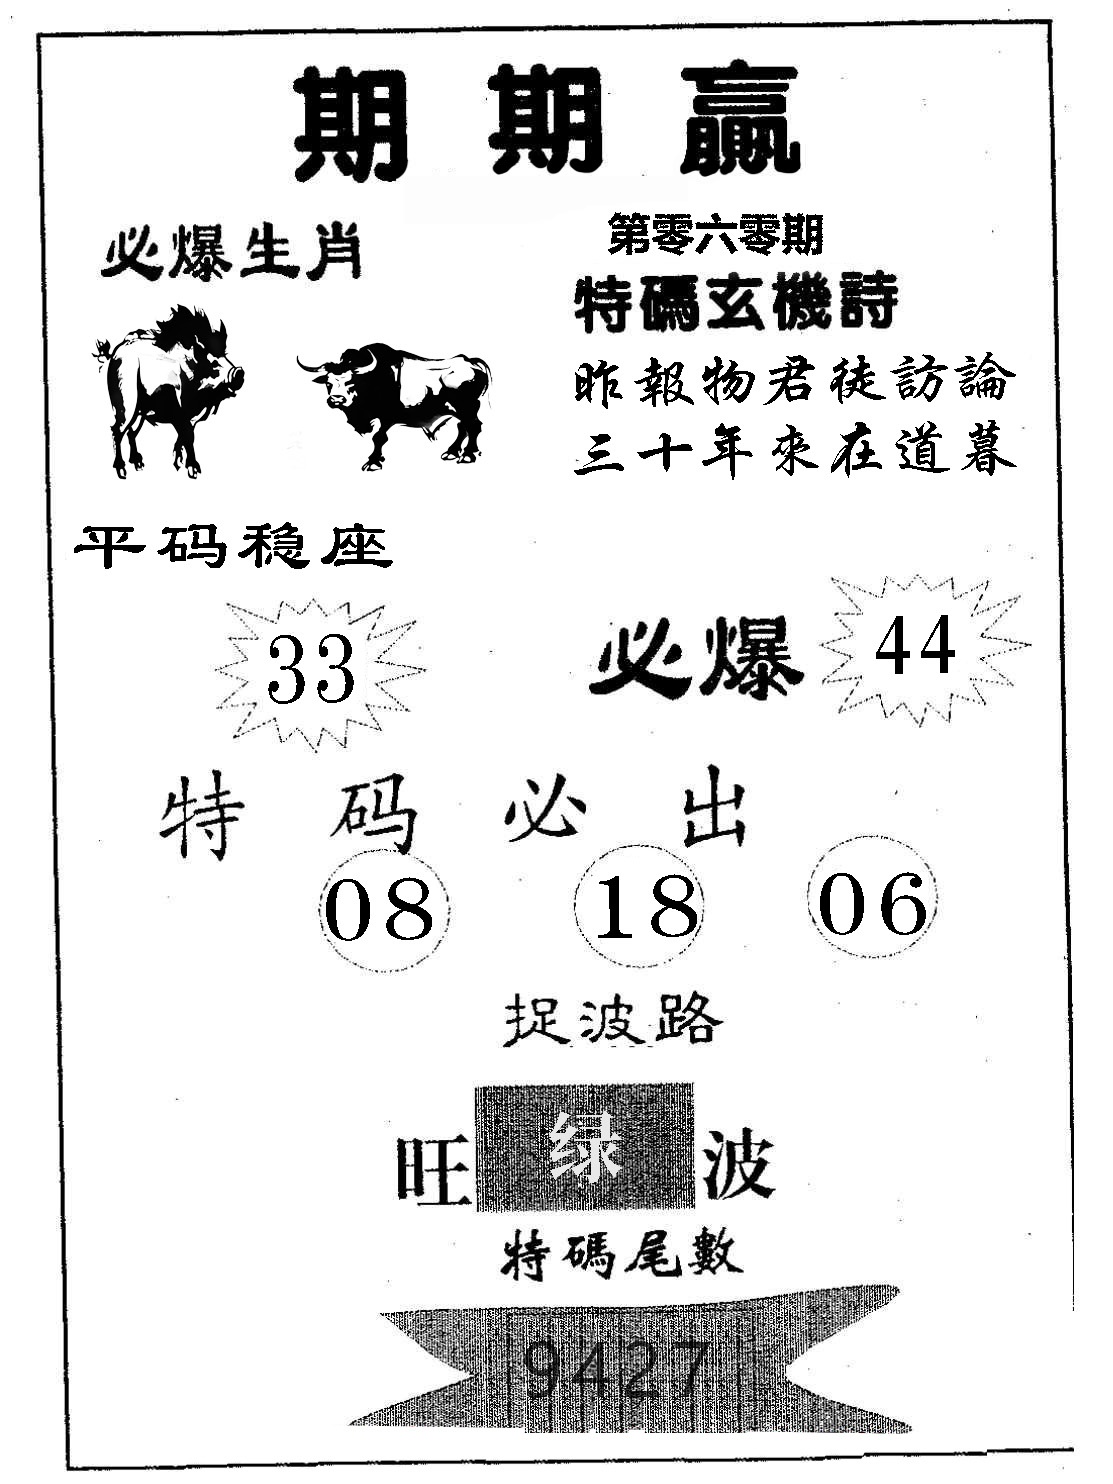 期期赢
必爆生肖
第零六零期
特碼玄機詩
昨報物君徒訪論
三十年來在道暮
平码稳座
33
必爆
44
特码必出
08 18 06
捉波路
旺绿波
特碼尾數
9427